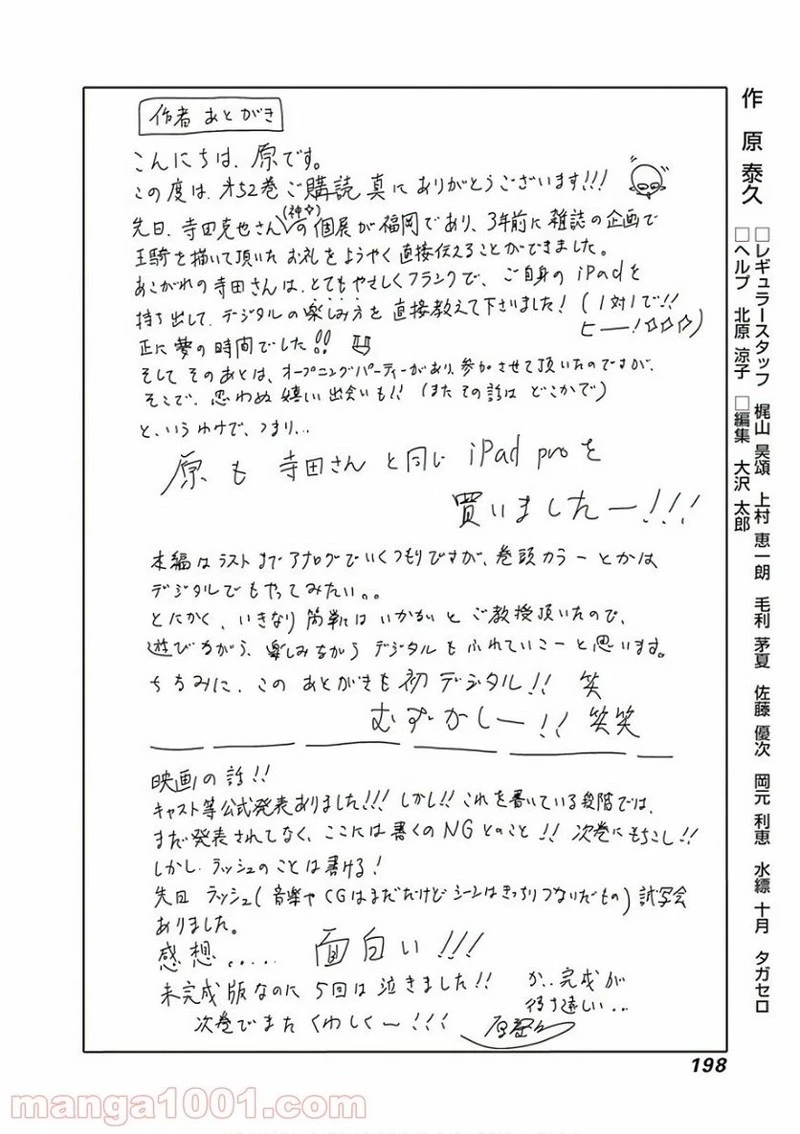 作 原 泰久
□レギュラースタッフ 梶山 昊頌 上村 恵一朗 毛利 茅夏 佐藤 優次 岡元 利恵 水縹 十月 タガセロ
□ヘルプ 北原 涼子 □編集 大沢 太郎
作者 あとがき
こんにちは、原です。
この度は、才52巻ご購読 真に ありがとうございます!!!
先日、寺田克也さん(神☆)の個展が福岡であり、3年前に雑誌の企画で
王騎を描いて頂いたお礼をようやく直接伝えることができました。
あこがれの寺田さんは、とてもやさしくフランクで、ご自身のiPadを
持ち出して、デジタルの楽しみ方を直接教えて下さいました! (1対1で!!
ヒー!☆☆☆)
正に夢の時間でした!!
そして そのあとは、オープニングパーティーがあり、参加させて頂いたのですが、
そこで、思わぬ嬉しい出会いも!! (またその話は どこかで)
と、いうわけで、つまり...
原も 寺田さんと同じ iPad proを
買いましたー!!!
本編はラストまでアナログでいくつもりですが、巻頭カラーとかは
デジタルでもやってみたい。。
とにかく、いきなり簡単にはいかないとご教授頂いたので、
遊びながら、楽しみながらデジタルもふれていこーと思います。
ちなみに、このあとがきも初デジタル!! 笑
むずかしー!! 笑笑
映画の話!!
キャスト等公式発表ありました!!! しかし!! これを書いている段階では、
まだ発表されてなく、ここには書くのNGとのこと!! 次巻にもちこし!!
しかし、ラッシュのことは書ける!
先日 ラッシュ(音楽やCGはまだだけどシーンはきっちりつないだもの)試写会
ありました。
感想..... 面白い!!!
未完成版なのに 5回は泣きました!! か、完成が
待ち遠しい...
次巻でまた くわしくー!!! 原泰久
198
manga1001.com